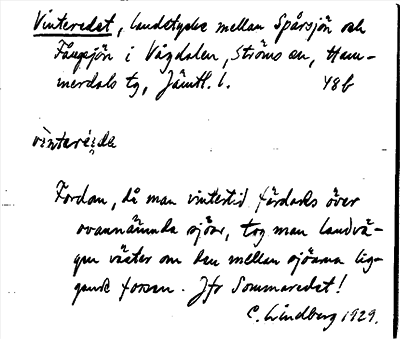 Vinteredet, landstycke mellan Spårsjön och
Fångsjön i Vågdalen, Ströms sn, Ham-
merdals tg, Jämtl. l. 48b
Fordom, då man vintertid färdades över
ovannämnda sjöar, tog man landvä-
gen väster om den mellan sjöarna lig-
gande forsen. Jfr Sommaredet!
C. Lindberg 1929.